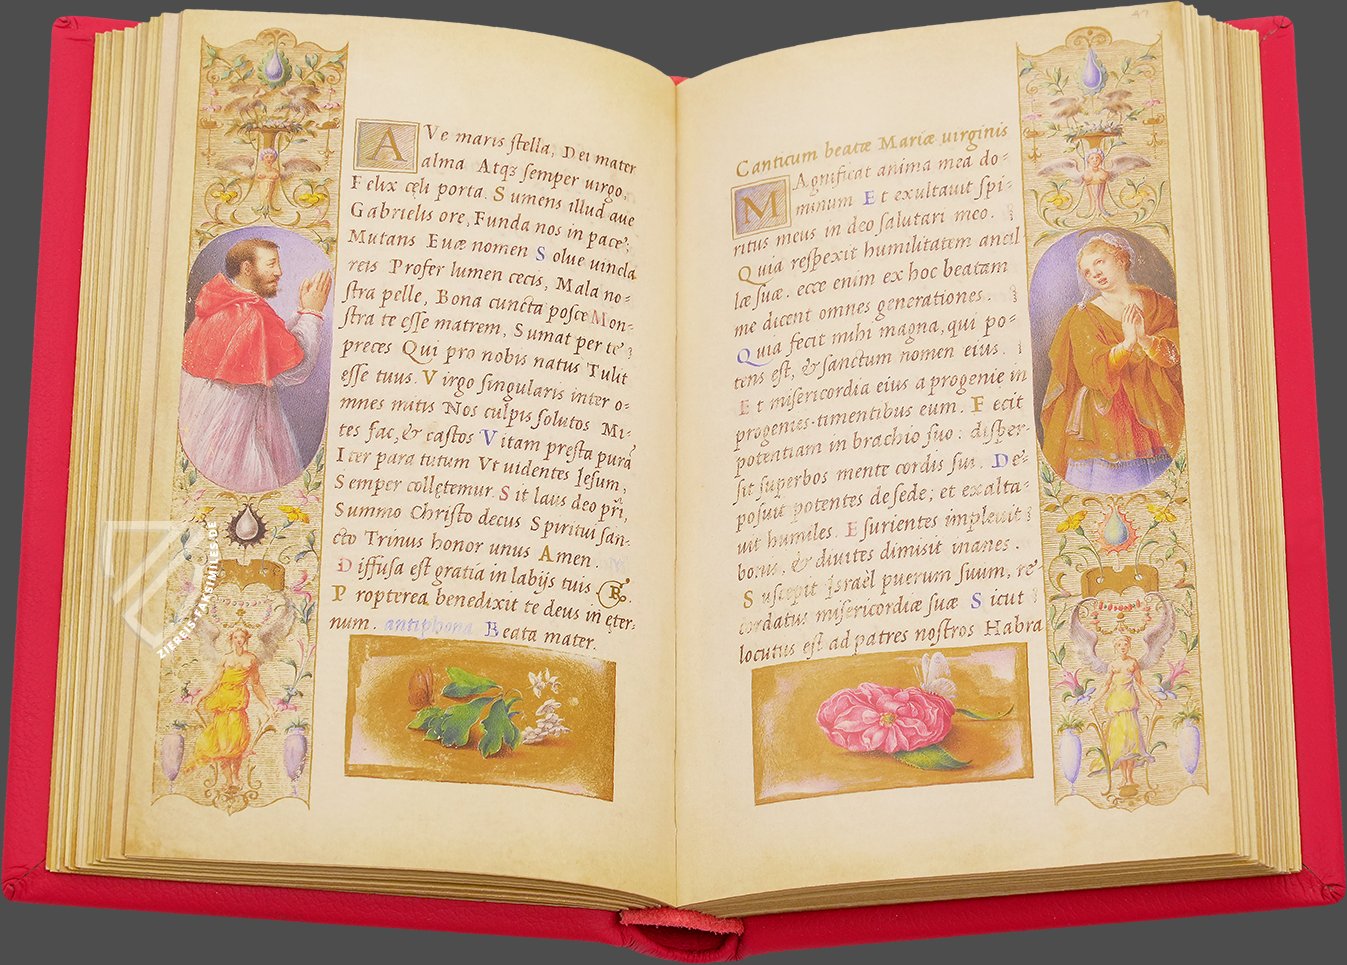 AVe maris stella, Dei mater
alma Atqз semper uirgo,
Felix cęli porta. Sumens illud aue
Gabrielis ore, Funda nos in pace,
Mutans Euæ nomen Solue uincla
reis Profer lumen cecis, Mala no-
stra pelle, Bona cuncta posce Mon-
stra te esse matrem, Sumat per te
preces Qui pro nobis natus Tulit
esse tuus. Virgo singularis inter o-
mnes mitis Nos culpis solutos Mi-
tes fac, & castos Vitam presta purā
Iter para tutum Vt uidentes Iesum,
Semper collętemur. Sit laus deo pr̄i,
Summo Christo decus Spiritui san-
cto Trinus honor unus Amen.
Diffusa est gratia in labijs tuis ℟.
Propterea benedixit te deus in ęter-
num. antiphona Beata mater.
47
Canticum beatæ Mariæ uirginis
MAgnificat anima mea do-
minum Et exultauit spi-
ritus meus in deo salutari meo.
Quia respexit humilitatem ancil
læ suæ. ecce enim ex hoc beatam
me dicent omnes generationes.
Quia fecit mihi magna, qui po-
tens est, & sanctum nomen eius.
Et misericordia eius a progenie in
progenies timentibus eum. Fecit
potentiam in brachio suo: disper-
sit superbos mente cordis sui. De-
posuit potentes de sede; et exalta-
uit humiles. Esurientes impleuit
bonis, & diuites dimisit inanes.
Suscepit Israël puerum suum, re
cordatus misericordiæ suæ Sicut
locutus est ad patres nostros Habra
ZIEREIS FAKSIMILES.DE